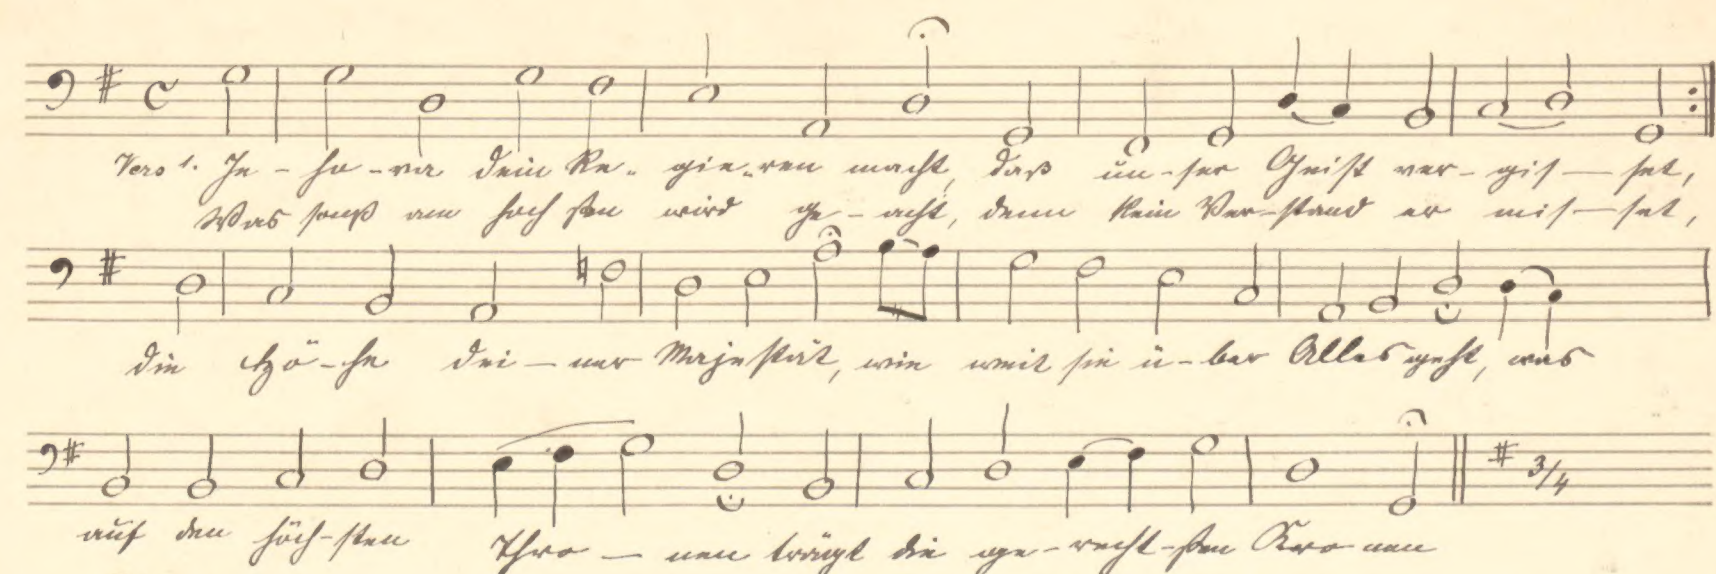 Vers 1. Je - ho - va dein Re - gie - ren macht, daß un - ser Geist ver - gis - set,
Was sonst am höch sten wird ge - acht, denn kein Ver - stand er mis - set,
die Hö - he dei - ner Maje stät, wie weit sie ü - ber Alles geht, was
3/4
auf den höch - sten Thro - nen trägt die ge - recht - sten Kro nen